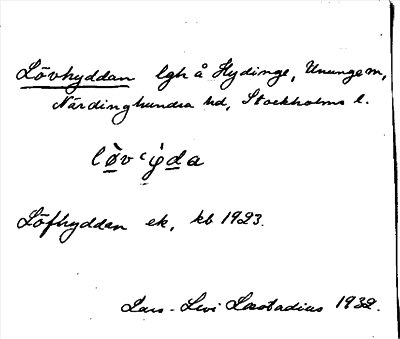 Lövhyddan lgh å Hydinge, Ununge sn,
Närdinghundra hd, Stockholms l.
lø̀v‘ẏda
Löfhyddan ek, kb 1923.
Lars-Levi Læstadius 1932.